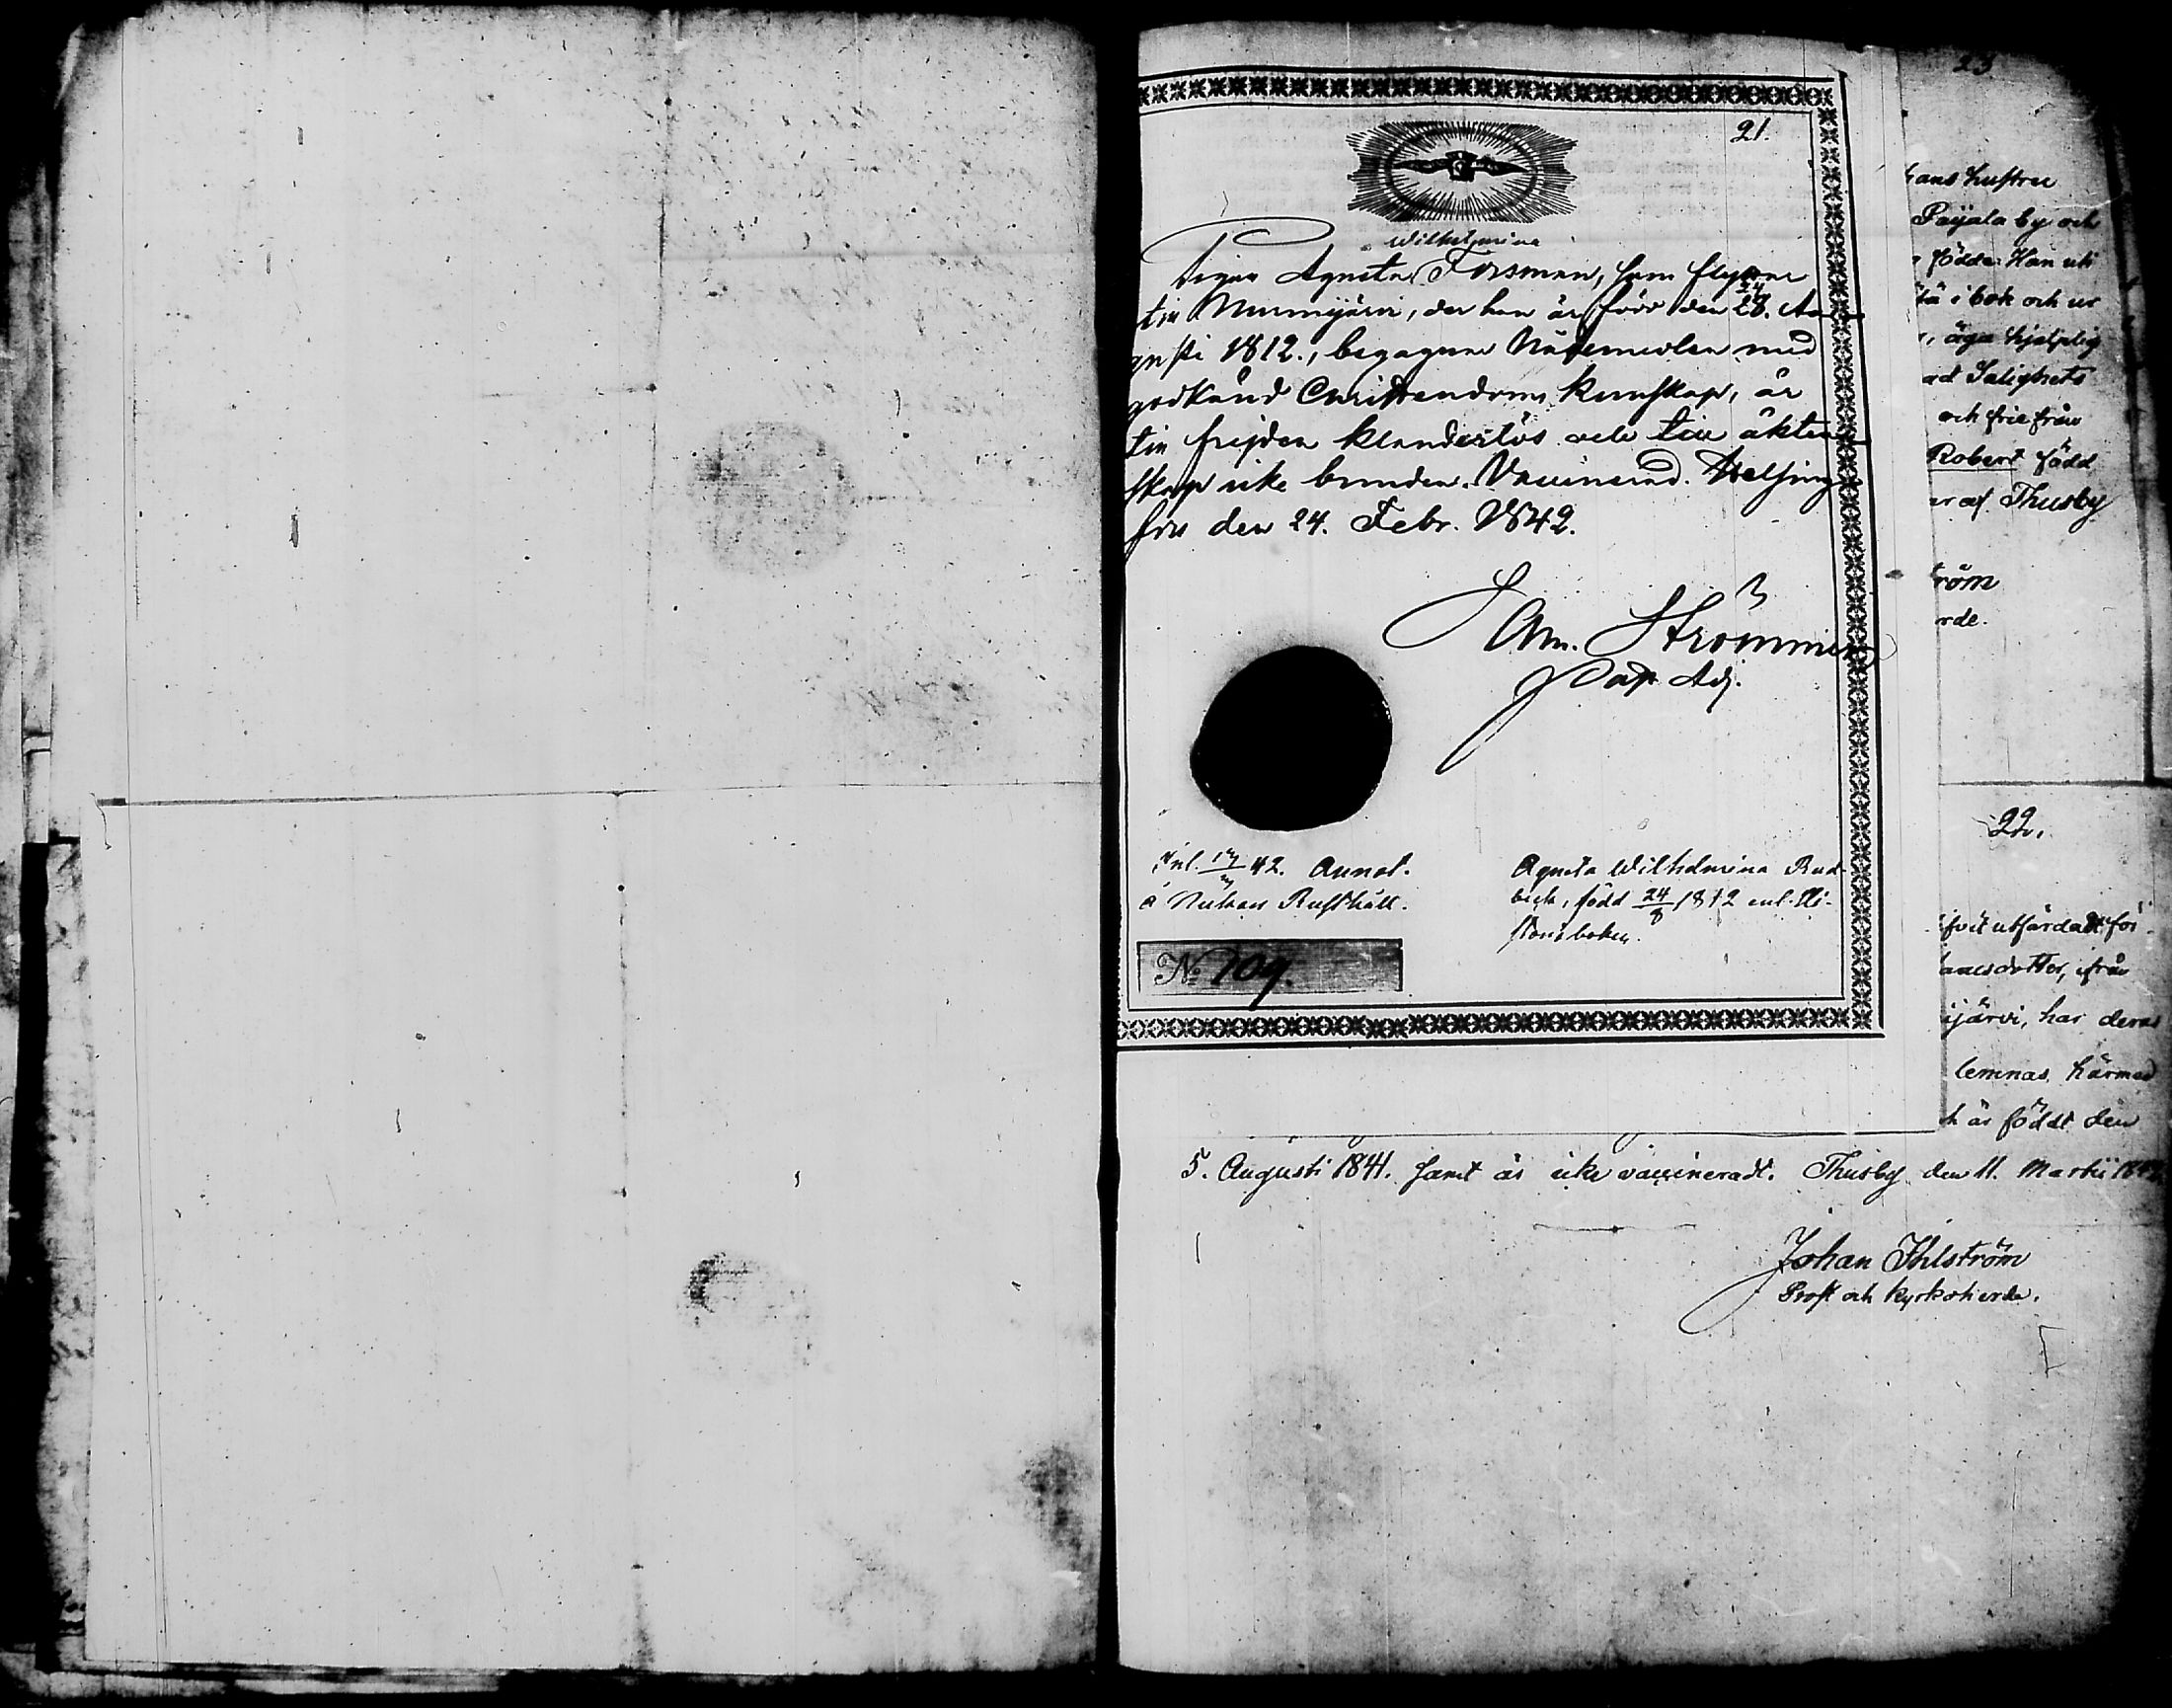 21.
Wilhelmina
Pigan Agneta Forsman, som flyttar
24
till Nurmijärvi, der hon är född den 28. Au-
gusti 1812., begagnar Nådemedlen med
godkänd Christendoms kunskap, är
till frejden klanderlös och till äkten-
skap icke bunden. Vaccinerad. Helsing-
fors den 24. Febr. 1842.
Strömm
Past. Adj.
Inl. 42. Annot.
å Rusthåll.
Agneta Wilhelmina Rud-
beck, född 24/8 1812 enl. Hi-
storieboken.
No 109.
23
hans hustru
Paijala by och
födde: Han uti
i bok och ur
äga hjelplig
Salighets
och frie från
Robert född
af Thusby
röm
rde.
22.
utfärdadt för
dotter, ifrån
ijärvi, har deras
lemnas härmed
är föddt den
5. Augusti 1841. samt är icke vaccineradt. Thusby den 11. Martii 1842.
Johan Ihlström
Prost och kyrkoherde.